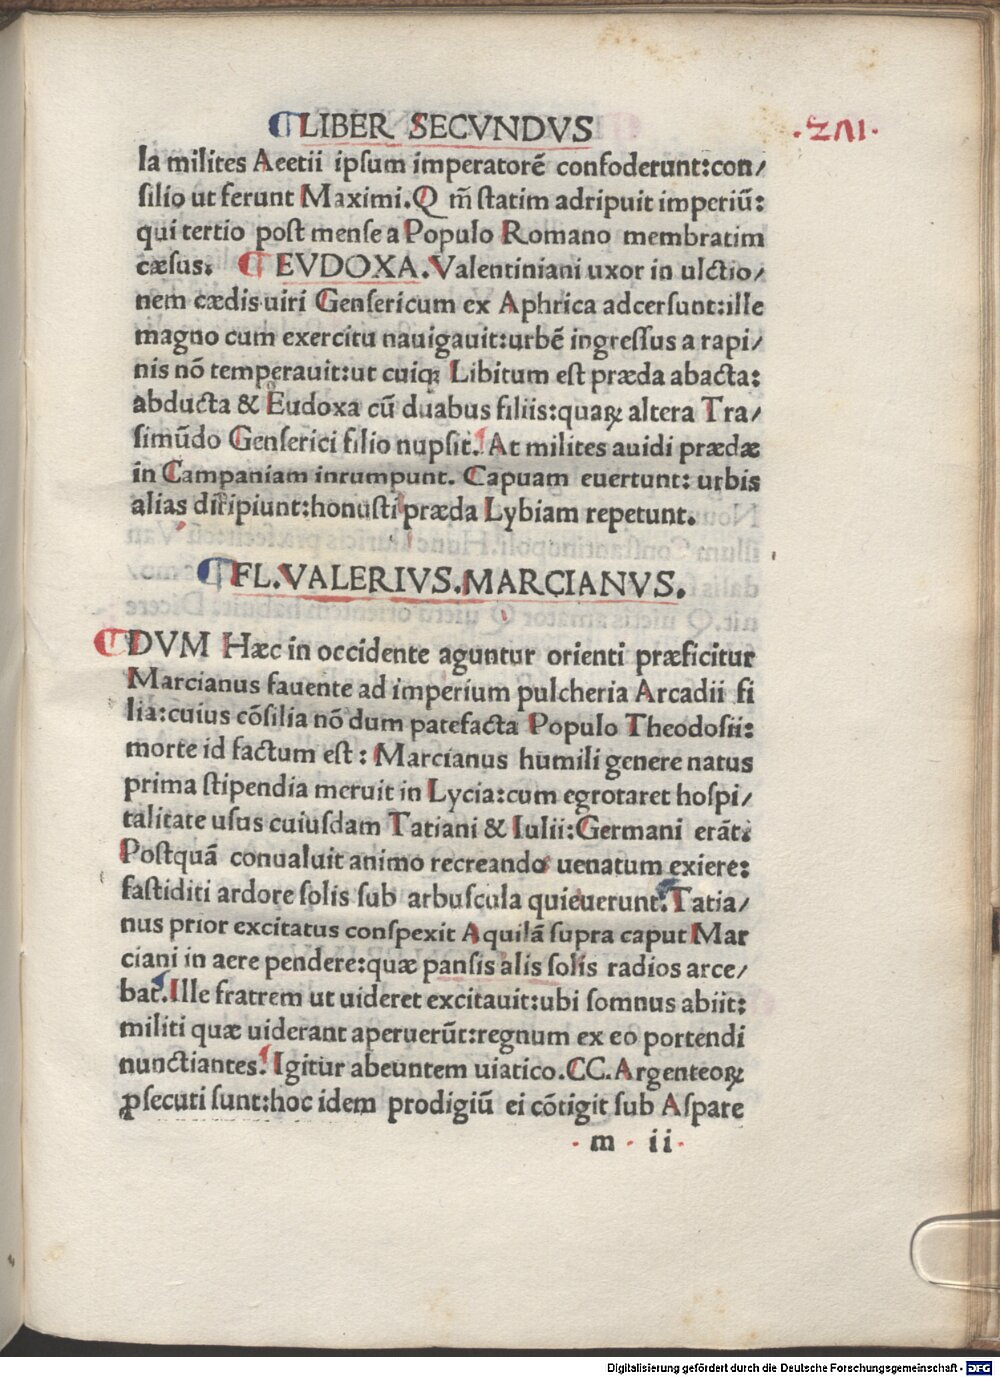 ¶LIBER SECVNDVS
la milites Aeetii ipsum imperatorē confoderunt:con/
silio ut ferunt Maximi.Q m̄ statim adripuit imperiū:
qui tertio post mense a Populo Romano membratim
cæsus. ¶ EVDOXA.Valentiniani uxor in ulctio/
nem cædis uiri Gensericum ex Aphrica adcersunt:ille
magno cum exercitu nauigauit:urbē ingressus a rapi/
nis nō temperauit:ut cuiqꝫ Libitum est præda abacta:
abducta & Eudoxa cū duabus filiis:quaꝝ altera Tra/
simūdo Genserici filio nupsit. At milites auidi prædæ
in Campaniam inrumpunt. Capuam euertunt: urbis
alias diripiunt:honusti præda Lybiam repetunt.
¶FL.VALERIVS.MARCIANVS.
¶DVM Hæc in occidente aguntur orienti præficitur
Marcianus fauente ad imperium pulcheria Arcadii fi
lia:cuius cōsilia nō dum patefacta Populo Theodosii:
morte id factum est: Marcianus humili genere natus
prima stipendia meruit in Lycia:cum egrotaret hospi/
talitate usus cuiusdam Tatiani & Iulii:Germani erāt:
Postquā conualuit animo recreando uenatum exiere:
fastiditi ardore solis sub arbuscula quieuerunt.Tatia/
nus prior excitatus conspexit Aquilā supra caput Mar
ciani in aere pendere:quæ pansis alis solis radios arce/
bat.Ille fratrem ut uideret excitauit:ubi somnus abiit:
militi quæ uiderant aperuerūt:regnum ex eo portendi
nunctiantes. Igitur abeuntem uiatico.CC.Argenteoꝝ
ꝓsecuti sunt:hoc idem prodigiū ei cōtigit sub Aspare
m ii
Digitalisierung gefördert durch die Deutsche Forschungsgemeinschaft - DFG